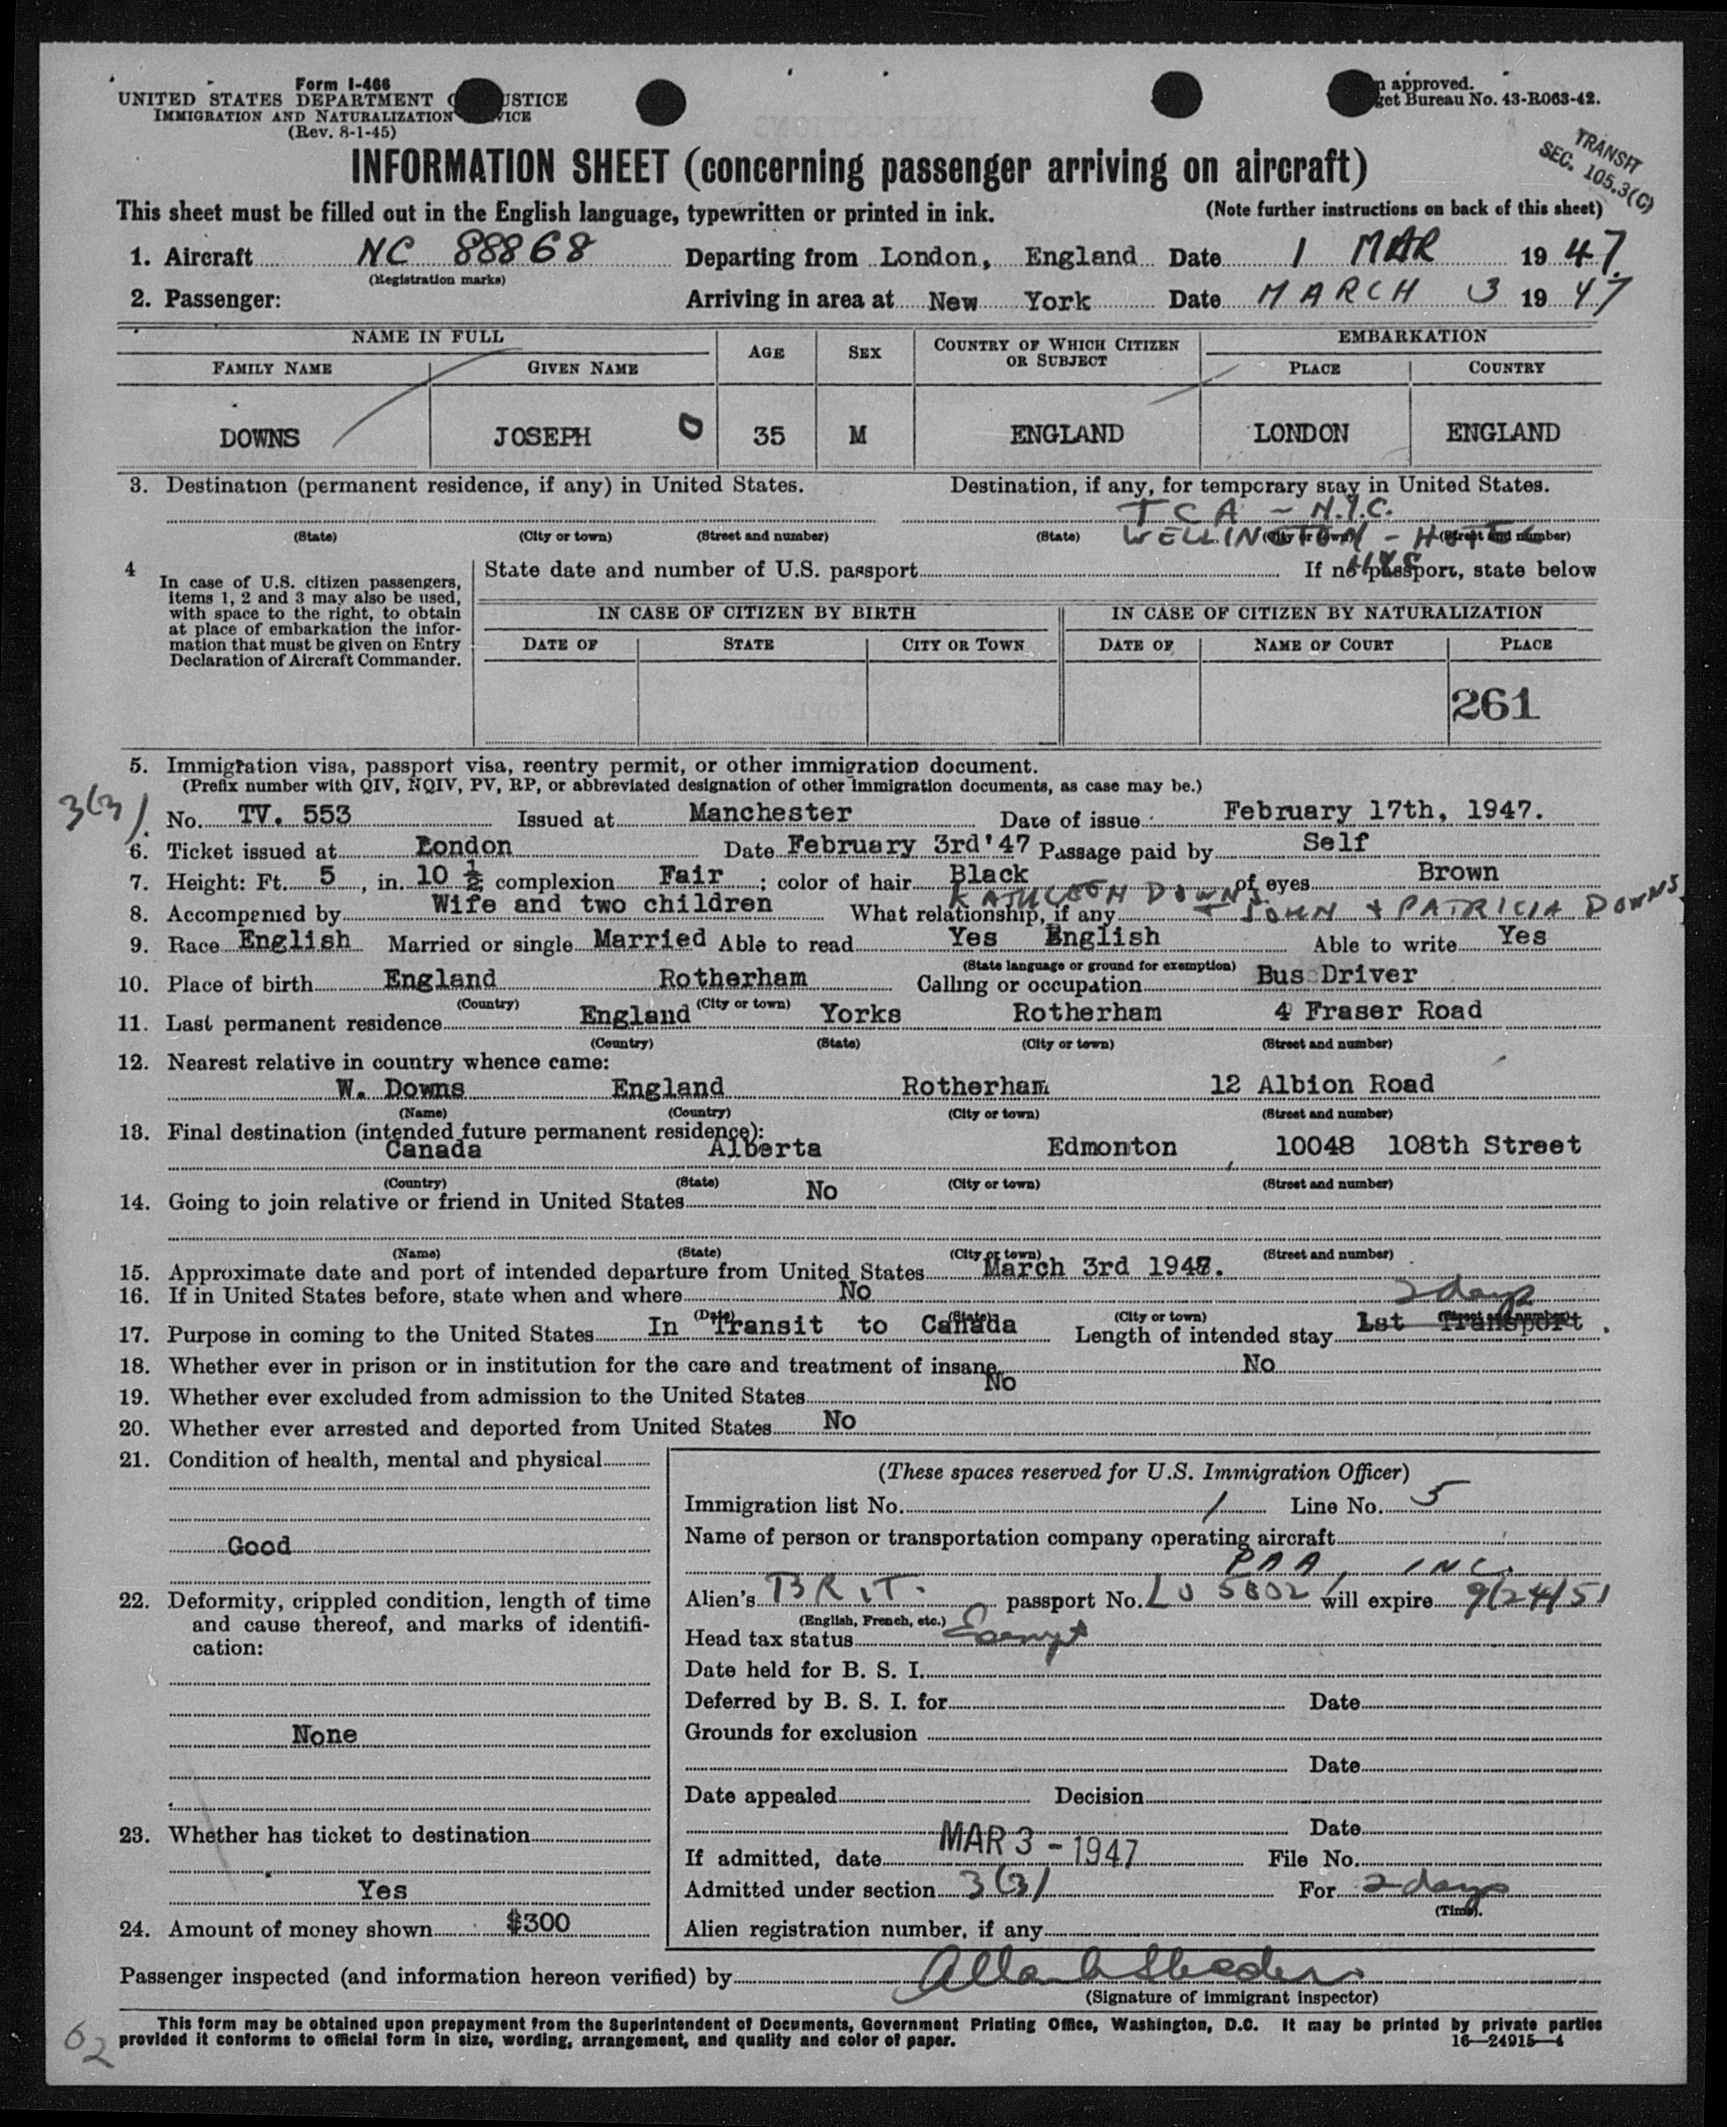 Form I-466
UNITED STATES DEPARTMENT JUSTICE
IMMIGRATION AND NATURALIZATION SERVICE
(Rev. 8-1-45)
approved.
Bureau No. 43-R063-42.
TRANSIT
SEC. 105.3(C)
INFORMATION SHEET (concerning passenger arriving on aircraft)
This sheet must be filled out in the English language, typewritten or printed in ink.
(Note further instructions on back of this sheet)
1. Aircraft NC 88868 Departing from London, England Date 1 MAR 1947
(Registration marks)
2. Passenger: Arriving in area at New York Date MARCH 3 1947
NAME IN FULL AGE SEX COUNTRY OF WHICH CITIZEN OR SUBJECT EMBARKATION
FAMILY NAME GIVEN NAME PLACE COUNTRY
DOWNS JOSEPH 0 35 M ENGLAND LONDON ENGLAND
3. Destination (permanent residence, if any) in United States. Destination, if any, for temporary stay in United States.
TCA - N.Y.C.
WELLINGTON - HOTEL
(State) (City or town) (Street and number) (State) (City or town) (Street and number)
4 In case of U.S. citizen passengers, items 1, 2 and 3 may also be used, with space to the right, to obtain at place of embarkation the information that must be given on Entry Declaration of Aircraft Commander.
State date and number of U.S. passport If no passport, state below
IN CASE OF CITIZEN BY BIRTH IN CASE OF CITIZEN BY NATURALIZATION
DATE OF STATE CITY OR TOWN DATE OF NAME OF COURT PLACE
261
5. Immigration visa, passport visa, reentry permit, or other immigration document.
(Prefix number with QIV, NQIV, PV, RP, or abbreviated designation of other immigration documents, as case may be.)
3(3)
No. TV. 553 Issued at Manchester Date of issue February 17th, 1947.
6. Ticket issued at London Date February 3rd'47 Passage paid by Self
7. Height: Ft. 5, in. 10 ½; complexion Fair; color of hair Black of eyes Brown
KATHLEEN DOWNS
8. Accompanied by Wife and two children What relationship, if any + JOHN + PATRICIA DOWNS
9. Race English Married or single Married Able to read Yes English Able to write Yes
(State language or ground for exemption)
10. Place of birth England Rotherham Calling or occupation Bus Driver
(Country) (City or town)
11. Last permanent residence England Yorks Rotherham 4 Fraser Road
(Country) (State) (City or town) (Street and number)
12. Nearest relative in country whence came:
W. Downs England Rotherham 12 Albion Road
(Name) (Country) (City or town) (Street and number)
13. Final destination (intended future permanent residence):
Canada Alberta Edmonton, 10048 108th Street
(Country) (State) (City or town) (Street and number)
14. Going to join relative or friend in United States No
(Name) (State) (City or town) (Street and number)
15. Approximate date and port of intended departure from United States March 3rd 1947.
16. If in United States before, state when and where No
(Date) (State) (City or town) (Street and number)
2 days
17. Purpose in coming to the United States In Transit to Canada Length of intended stay 1st Transport.
18. Whether ever in prison or in institution for the care and treatment of insane No
19. Whether ever excluded from admission to the United States No
20. Whether ever arrested and deported from United States No
21. Condition of health, mental and physical
Good
22. Deformity, crippled condition, length of time and cause thereof, and marks of identification:
None
23. Whether has ticket to destination
Yes
24. Amount of money shown $300
(These spaces reserved for U.S. Immigration Officer)
Immigration list No. 1 Line No. 5
Name of person or transportation company operating aircraft
PAA, INC.
Alien's BRIT. passport No. LO 5802 will expire 9/24/51
(English, French, etc.)
Head tax status Exempt
Date held for B. S. I.
Deferred by B. S. I. for Date
Grounds for exclusion
Date
Date appealed Decision
Date
If admitted, date MAR 3 - 1947 File No.
Admitted under section 3(3) For 2 days
(Time).
Alien registration number, if any
Passenger inspected (and information hereon verified) by
(Signature of immigrant inspector)
This form may be obtained upon prepayment from the Superintendent of Documents, Government Printing Office, Washington, D.C. It may be printed by private parties
provided it conforms to official form in size, wording, arrangement, and quality and color of paper.
16—24915-4
62